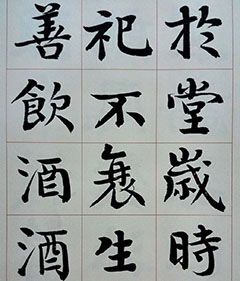 於堂歲時
祀不衰生
善飲酒酒